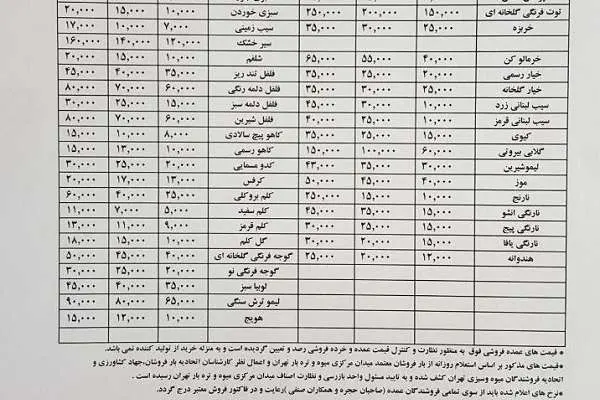 توت فرنگی گلخانه ای ۱۵۰,۰۰۰ ۲۰۰,۰۰۰ ۲۵۰,۰۰۰ سبزی خوردن ۱۰,۰۰۰ ۱۵,۰۰۰ ۲۰,۰۰۰
خربزه ۲۵,۰۰۰ ۳۰,۰۰۰ ۳۵,۰۰۰ سیب زمینی ۷,۰۰۰ ۱۰,۰۰۰ ۱۷,۰۰۰
سیر خشک ۱۲۰,۰۰۰ ۱۴۰,۰۰۰ ۱۶۰,۰۰۰
خرمالو کن ۴۰,۰۰۰ ۵۵,۰۰۰ ۶۵,۰۰۰ شلغم ۱۰,۰۰۰ ۱۵,۰۰۰ ۲۰,۰۰۰
خیار رسمی ۲۰,۰۰۰ ۲۵,۰۰۰ ۳۵,۰۰۰ فلفل تند ریز ۳۵,۰۰۰ ۴۰,۰۰۰ ۴۵,۰۰۰
خیار گلخانه ۲۵,۰۰۰ ۳۰,۰۰۰ ۳۵,۰۰۰ فلفل دلمه رنگی ۶۰,۰۰۰ ۷۰,۰۰۰ ۸۰,۰۰۰
سیب لبنانی زرد ۱۰,۰۰۰ ۳۰,۰۰۰ ۴۵,۰۰۰ فلفل دلمه سبز ۱۵,۰۰۰ ۲۵,۰۰۰ ۳۰,۰۰۰
سیب لبنانی قرمز ۱۰,۰۰۰ ۳۰,۰۰۰ ۴۰,۰۰۰ فلفل شیرین ۶۰,۰۰۰ ۷۰,۰۰۰ ۸۰,۰۰۰
کیوی ۱۵,۰۰۰ ۲۵,۰۰۰ ۳۵,۰۰۰ کاهو پیچ سالادی ۸,۰۰۰ ۱۰,۰۰۰ ۱۵,۰۰۰
گلابی بیروتی ۶۰,۰۰۰ ۱۰۰,۰۰۰ ۱۵۰,۰۰۰ کاهو رسمی ۱۰,۰۰۰ ۱۳,۰۰۰ ۱۵,۰۰۰
لیموشیرین ۳۰,۰۰۰ ۳۵,۰۰۰ ۴۳,۰۰۰ کدو مسمایی ۲۰,۰۰۰ ۲۵,۰۰۰ ۳۰,۰۰۰
موز ۴۰,۰۰۰ ۴۵,۰۰۰ ۵۰,۰۰۰ کرفس ۱۳,۰۰۰ ۱۷,۰۰۰ ۲۰,۰۰۰
نارنج ۱۰,۰۰۰ ۱۵,۰۰۰ ۲۰,۰۰۰ کلم بروکلی ۲۵,۰۰۰ ۴۰,۰۰۰ ۶۰,۰۰۰
نارنگی انشو ۱۵,۰۰۰ ۳۵,۰۰۰ ۴۵,۰۰۰ کلم سفید ۵,۰۰۰ ۷,۰۰۰ ۱۱,۰۰۰
نارنگی پیج ۱۵,۰۰۰ ۲۵,۰۰۰ ۳۰,۰۰۰ کلم قرمز ۹,۰۰۰ ۱۱,۰۰۰ ۱۳,۰۰۰
نارنگی یافا ۱۵,۰۰۰ ۲۰,۰۰۰ ۳۰,۰۰۰ گل کلم ۱۰,۰۰۰ ۱۵,۰۰۰ ۱۸,۰۰۰
هندوانه ۱۲,۰۰۰ ۲۰,۰۰۰ ۲۵,۰۰۰ گوجه فرنگی گلخانه ای ۴۰,۰۰۰ ۴۵,۰۰۰ ۵۰,۰۰۰
گوجه فرنگی نو ۲۰,۰۰۰ ۲۵,۰۰۰ ۳۰,۰۰۰
لوبیا سبز ۳۵,۰۰۰ ۴۰,۰۰۰ ۴۵,۰۰۰
لیمو ترش سنگی ۶۵,۰۰۰ ۸۰,۰۰۰ ۹۰,۰۰۰
هویج ۱۰,۰۰۰ ۱۲,۰۰۰ ۱۵,۰۰۰
* قیمت های عمده فروشی فوق به منظور نظارت و کنترل قیمت عمده و خرده فروشی رصد و تعیین گردیده است و به منزله خرید از تولید کننده نمی باشد.
* قیمت های مذکور بر اساس استعلام روزانه از بار فروشان معتمد میدان مرکزی میوه و تره بار تهران و اعمال نظر کارشناسان اتحادیه بار فروشان،جهاد کشاورزی و
اتحادیه فروشندگان میوه وسبزی تهران کشف شده و به تایید مسئول واحد بازرسی و نظارت اصناف میدان مرکزی میوه و تره بار تهران رسیده است .
* نرخ های اعلام شده باید از سوی تمامی فروشندگان عمده (صاحبان حجره و همکاران صنفی)رعایت و در فاکتور فروش معتبر درج گردد.